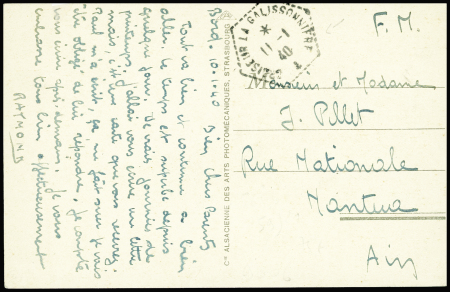 Bord. 10.1.40 Bien Chers Parents
Tout va bien et continue a bien
aller. Le temps est superbe depuis
quelques jours. Vraies journées de
printemps. J'allais vous écrire une lettre
mais, c'est une carte que vous recevrez.
Paul m'a écrit. ça me fait suer je vais
être obligé de lui répondre. Je compte
vous écrire après demain. Je vous
embrasse tous bien affectueusement
RAYMOND
Cie ALSACIENNE DES ARTS PHOTOMÉCANIQUES, STRASBOURG
CROISEUR LA GALISSONNIERE
11 - 1
40
F. M.
Monsieur et Madame
J. Pillet
Rue Nationale
Nantua
Ain